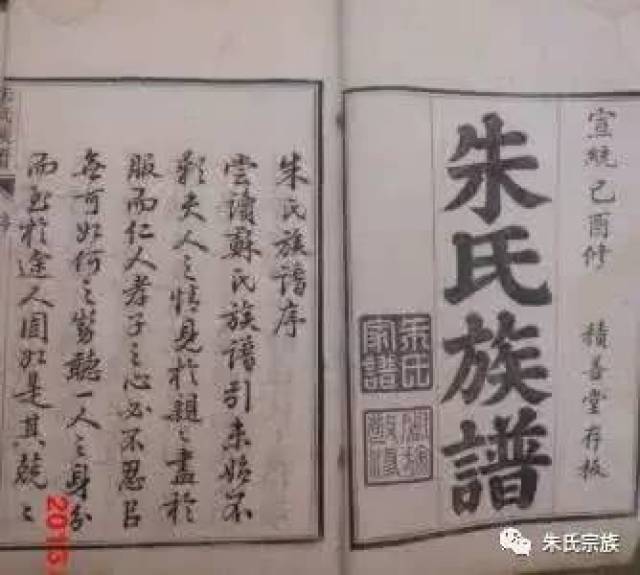 宣統己酉修　積善堂存板
朱氏族譜
朱氏家譜
朱氏族譜序
嘗讀蘇氏族譜引未始不
歎夫人之情見於親之盡於
服而仁人孝子之心必不忍㠯
無可如何之勢聽一人之身分
而至於途人固如是其兢〻
2015
朱氏宗族